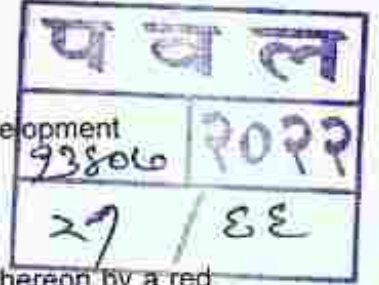 प व ल
elopment
१३४०७ २०२२
२१ / ६६
hereon by a red